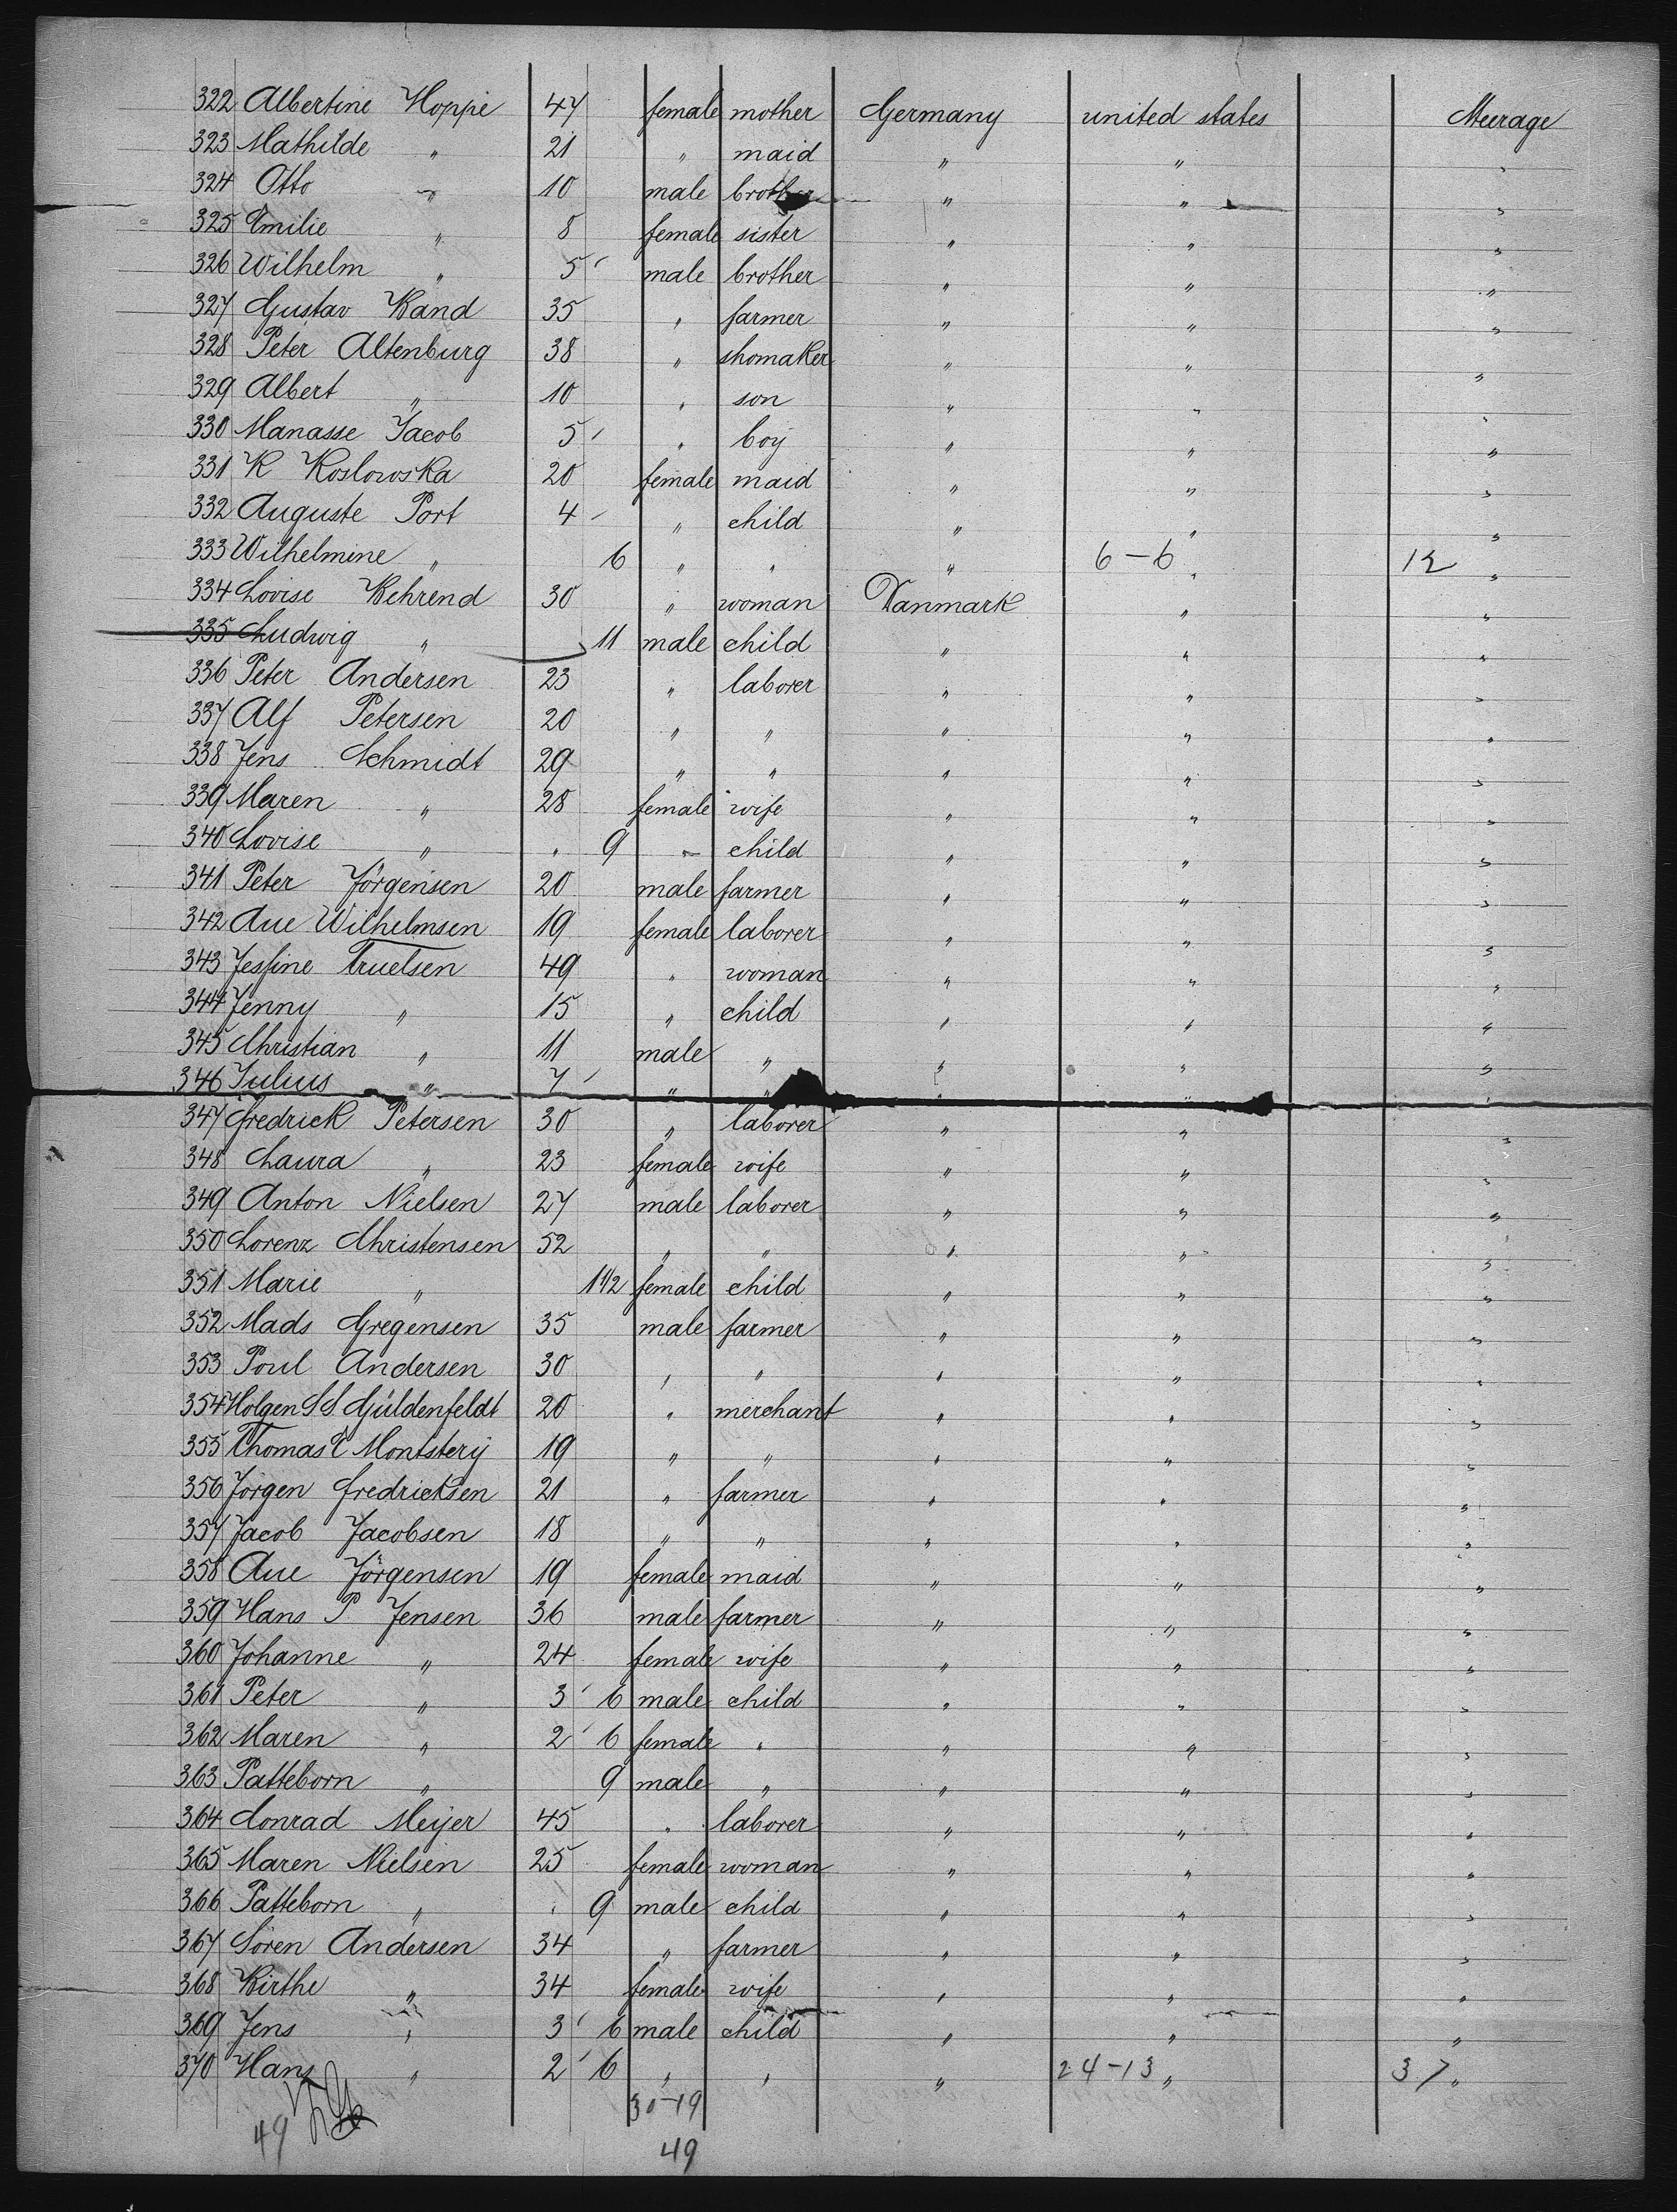 322 Albertine Hoppe 47 female mother Germany united states Steerage
323 Mathilde " 21 " maid " " "
324 Otto " 10 male brother " " "
325 Emilie " 8 female sister " " "
326 Wilhelm " 5 male brother " " "
327 Gustav Band 35 " farmer " " "
328 Peter Altenburg 38 " shomaker " " "
329 Albert " 10 " son " " "
330 Manasse Jacob 5 " boy " " "
331 K Koslowska 20 female maid " " "
332 Auguste Port 4 " child " " "
333 Wilhelmine " 6 " " " 6-6 " 12 "
334 Lovise Behrend 30 " woman Danmark " "
335 Ludwig " 11 male child " " "
336 Peter Andersen 23 " laborer " " "
337 Alf Petersen 20 " " " " "
338 Jens Schmidt 29 " " " " "
339 Maren " 28 female wife " " "
340 Lovise " " 9 " child " " "
341 Peter Jörgensen 20 male farmer " " "
342 Aue Wilhelmsen 19 female laborer " " "
343 Jesfine Truelsen 49 " woman " " "
344 Jenny " 15 " child " " "
345 Christian " 11 male " " " "
346 Julius " 7 " " " " "
347 Fredrick Petersen 30 " laborer " " "
348 Laura " 23 female wife " " "
349 Anton Nielsen 27 male laborer " " "
350 Lorenz Christensen 52 " " " " "
351 Marie " 1 1/2 female child " " "
352 Mads Gregensen 35 male farmer " " "
353 Poul Andersen 30 " " " " "
354 Holgen S S Güldenfeldt 20 " merchant " " "
355 Thomas E Montsterÿ 19 " " " " "
356 Jörgen Fredricksen 21 " farmer " " "
357 Jacob Jacobsen 18 " " " " "
358 Aue Jörgensen 19 female maid " " "
359 Hans P Jensen 36 male farmer " " "
360 Johanne " 24 female wife " " "
361 Peter " 3 6 male child " " "
362 Maren " 2 6 female " " " "
363 Patteborn " 9 male " " " "
364 Conrad Meijer 45 " laborer " " "
365 Maren Nielsen 25 female woman " " "
366 Patteborn " " 9 male child " " "
367 Sören Andersen 34 " farmer " " "
368 Birthe " 34 female wife " " "
369 Jens " 3 6 male child " " "
370 Hans " 2 6 " " " 24-13 " 37 "
30-19
49 49